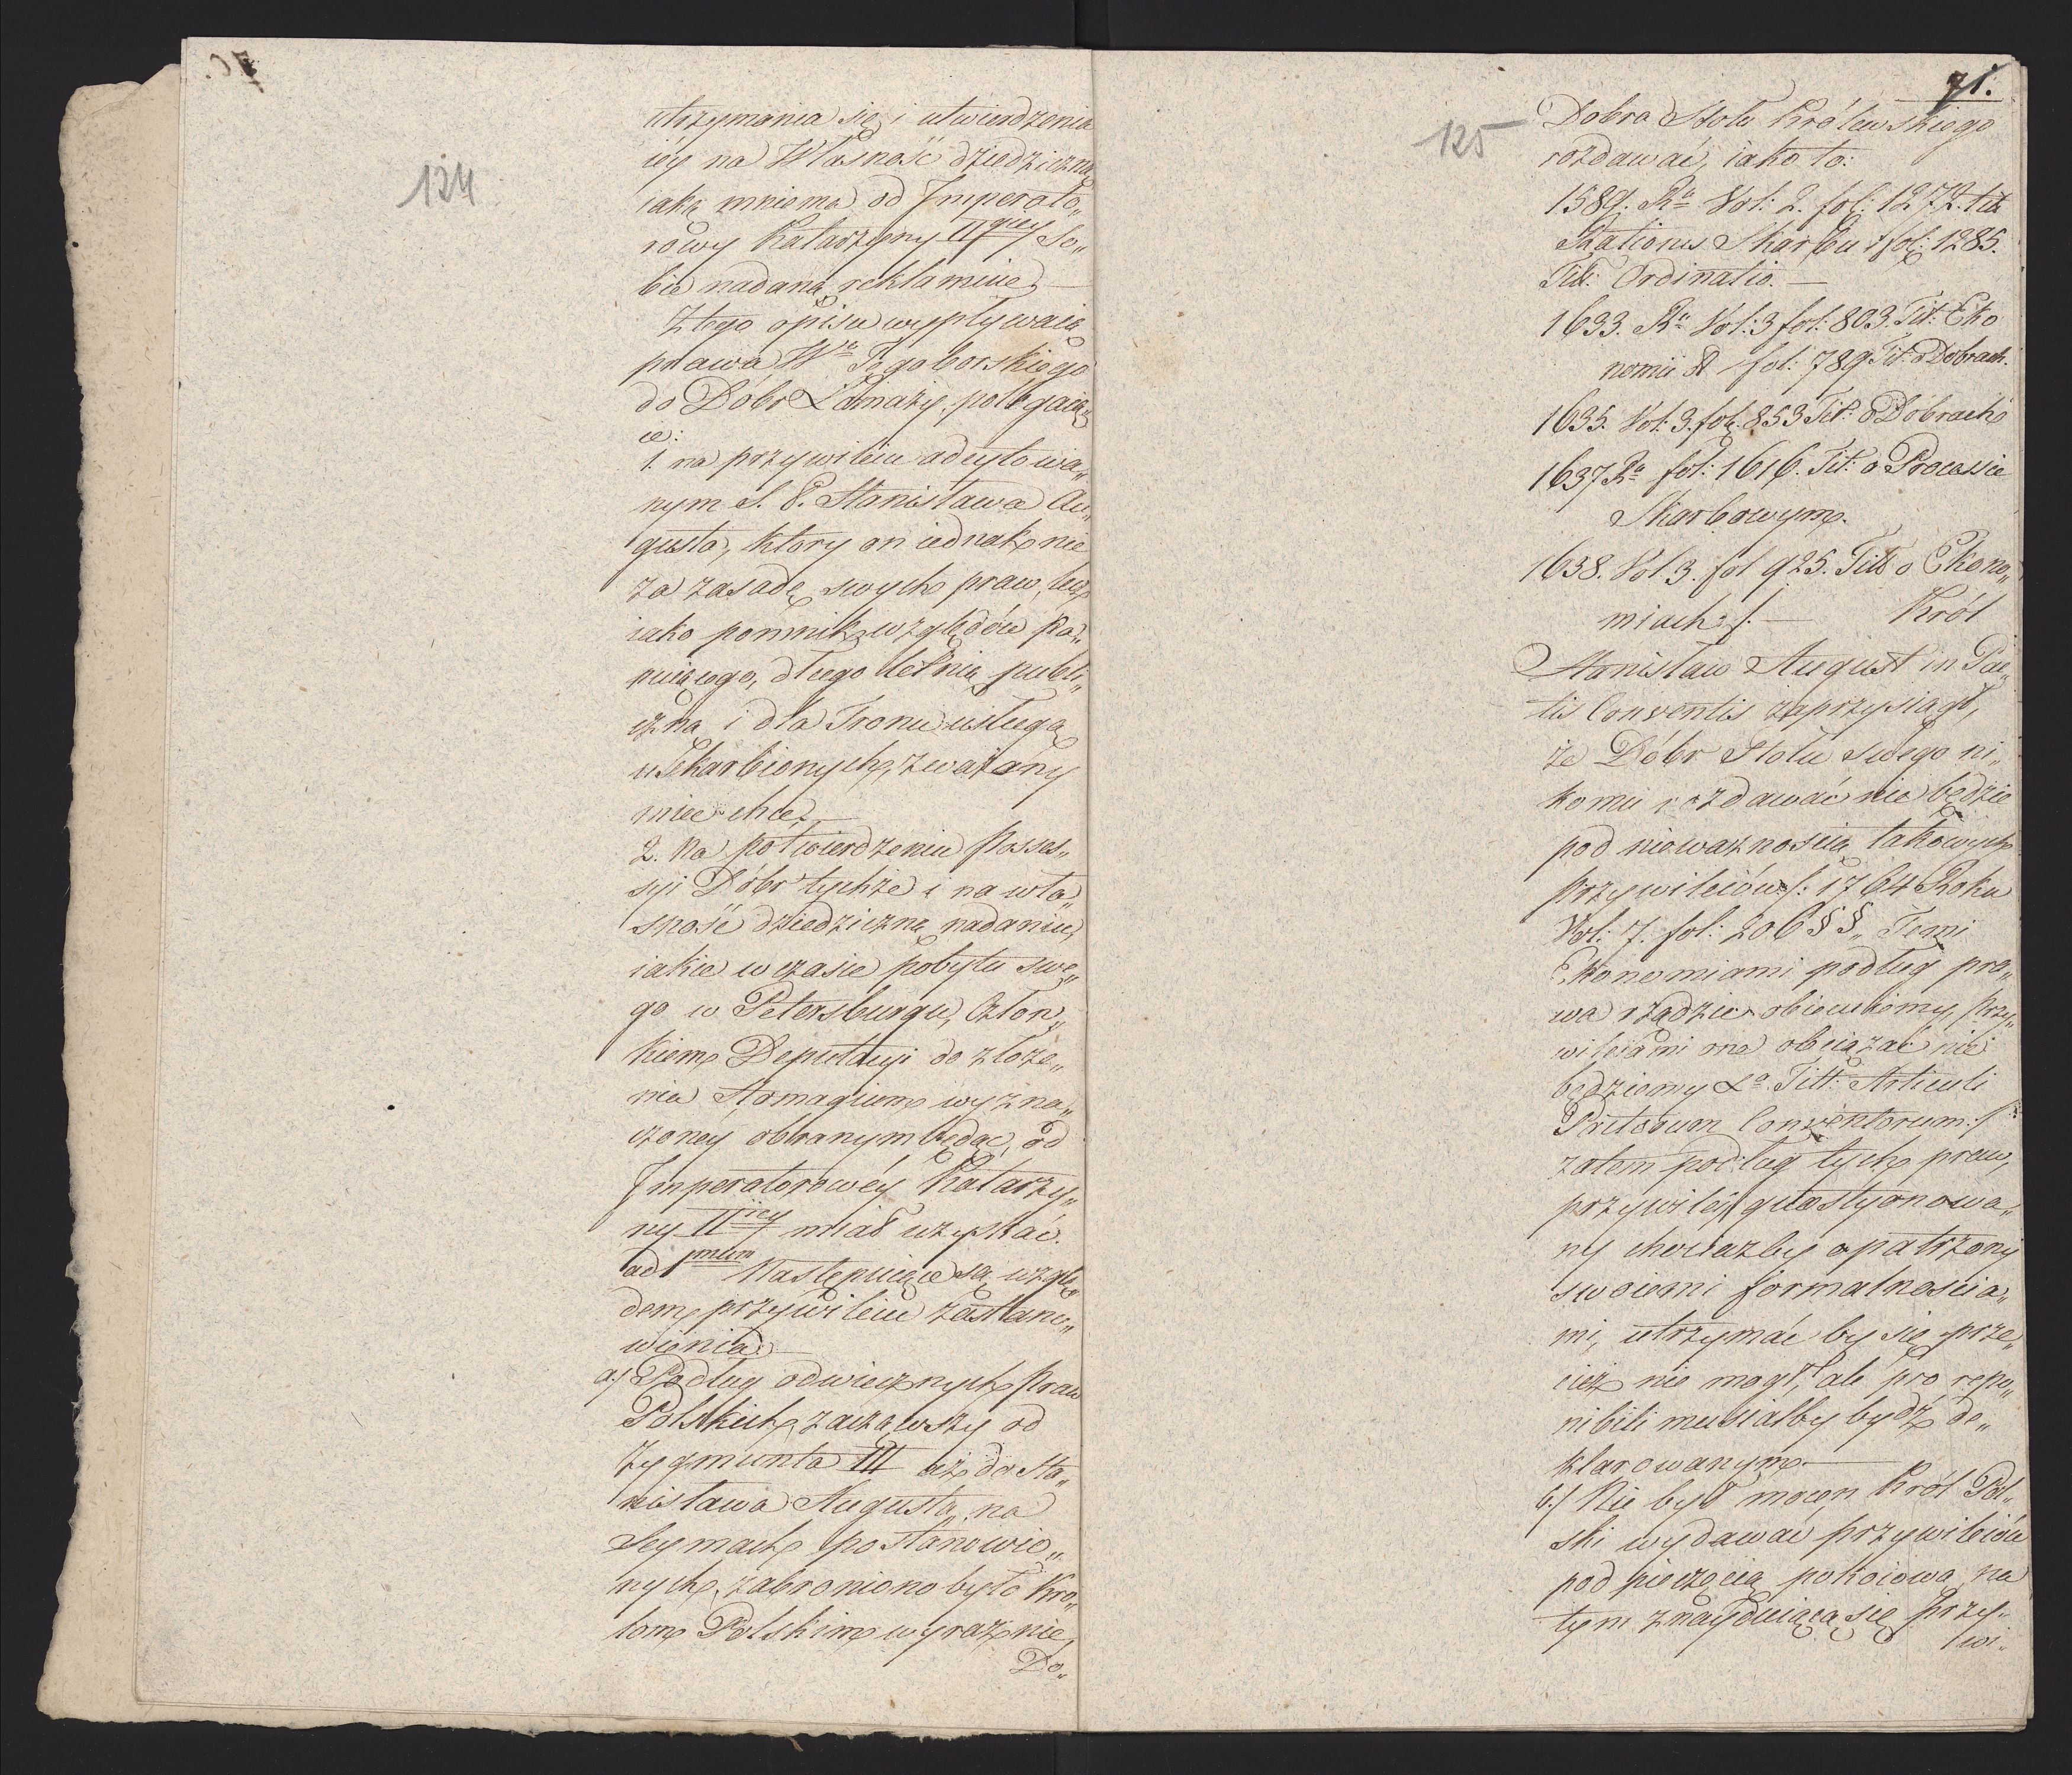 124
utrzymania się i utwierdzenia
iey na Własność dziedziczną
iaką mniema od Jmperato„
rowy Katarzyny IIgiey So„
bie nadaną reklamuie. —
Z tego opisu wypływaią
prawa Wo Tęgoborskiego
do Dóbr Łomazy polegaią„
ce:
1. na przywileiu adcytowa„
nym S. P. Stanisława Au„
gusta, ktory on iednak nie
za zasadę swych praw, lecz
iako pomnik względów Pa„
nuiącego, długo letnią publi„
czną i dla Tronu usługą
uskarbionych, zważany
mieć chce. —
2. Na potwierdzeniu Posses„
syi Dóbr tychże i na wła„
sność dziedziczną nadaniu,
iakie w czasie pobytu swe„
go w Petersburgu, Człon„
kiem Deputacyi do złoże„
nia Homagium wyzna„
czoney obranym będąc, od
Jmperatorowéy Katarzy„
ny IIiey miał uzyskać.
ad 1mum Następuiące są wzglę„
dem przywileiu zastano„
wienia: —
a./ Podług odwiecznych Praw
Polskich, zacząwszy od
Zygmunta III aż do Sta„
nisława Augusta, na
Seymach postanowio„
nych, zabroniono było Kró„
lom Polskim wyraznie,
Do„
71.
125
Dobra Stołu Królewskiego
rozdawać, iako to:
1589. Ro Vol: 2. fol: 1272. tit
Rationis Skarbu i fol: 1285.
Tit: Ordinatio. —
1633. Ro Vol: 3 fol: 803. Tit: Eko
nomii & fol: 789 Tit: o Dobrach.
1635. Vol: 3. fol. 853 Tit: o Dóbrach
1637 Ro fol: 1616. Tit: o Processie
Skarbowym.
1638. Vol 3. fol 925. Tit: o Ekono„
miach /. — Król
Stanisław August in Pac„
tis Conventis zaprzysiągł,
że Dóbr Stołu swego ni„
komu rozdawać nie będzie
pod nieważnością takowych
przywileiów /: 1764 Roku
Vol: 7. fol: 206 §§ „Temi
Ekonomiami podług pra„
wa rządzić obiecuiemy, przy„
wileiami one obciążać nie
będziemy La Titt: Articuli
Pactorum Conventorum: /
zatem podług tych praw,
przywiléj questyonowa„
ny chociażby opatrzony
swoiemi formalnościa„
mi, utrzymać by się prze„
cież nie mogł, ale pro repu„
nibili musiałby bydź de„
klarowanym —
b./ Nie był mocen Król Pol„
ski wydawać przywileiów
pod pieczęcią pokoiową na
tym znayduiącą się Przy„
wi„